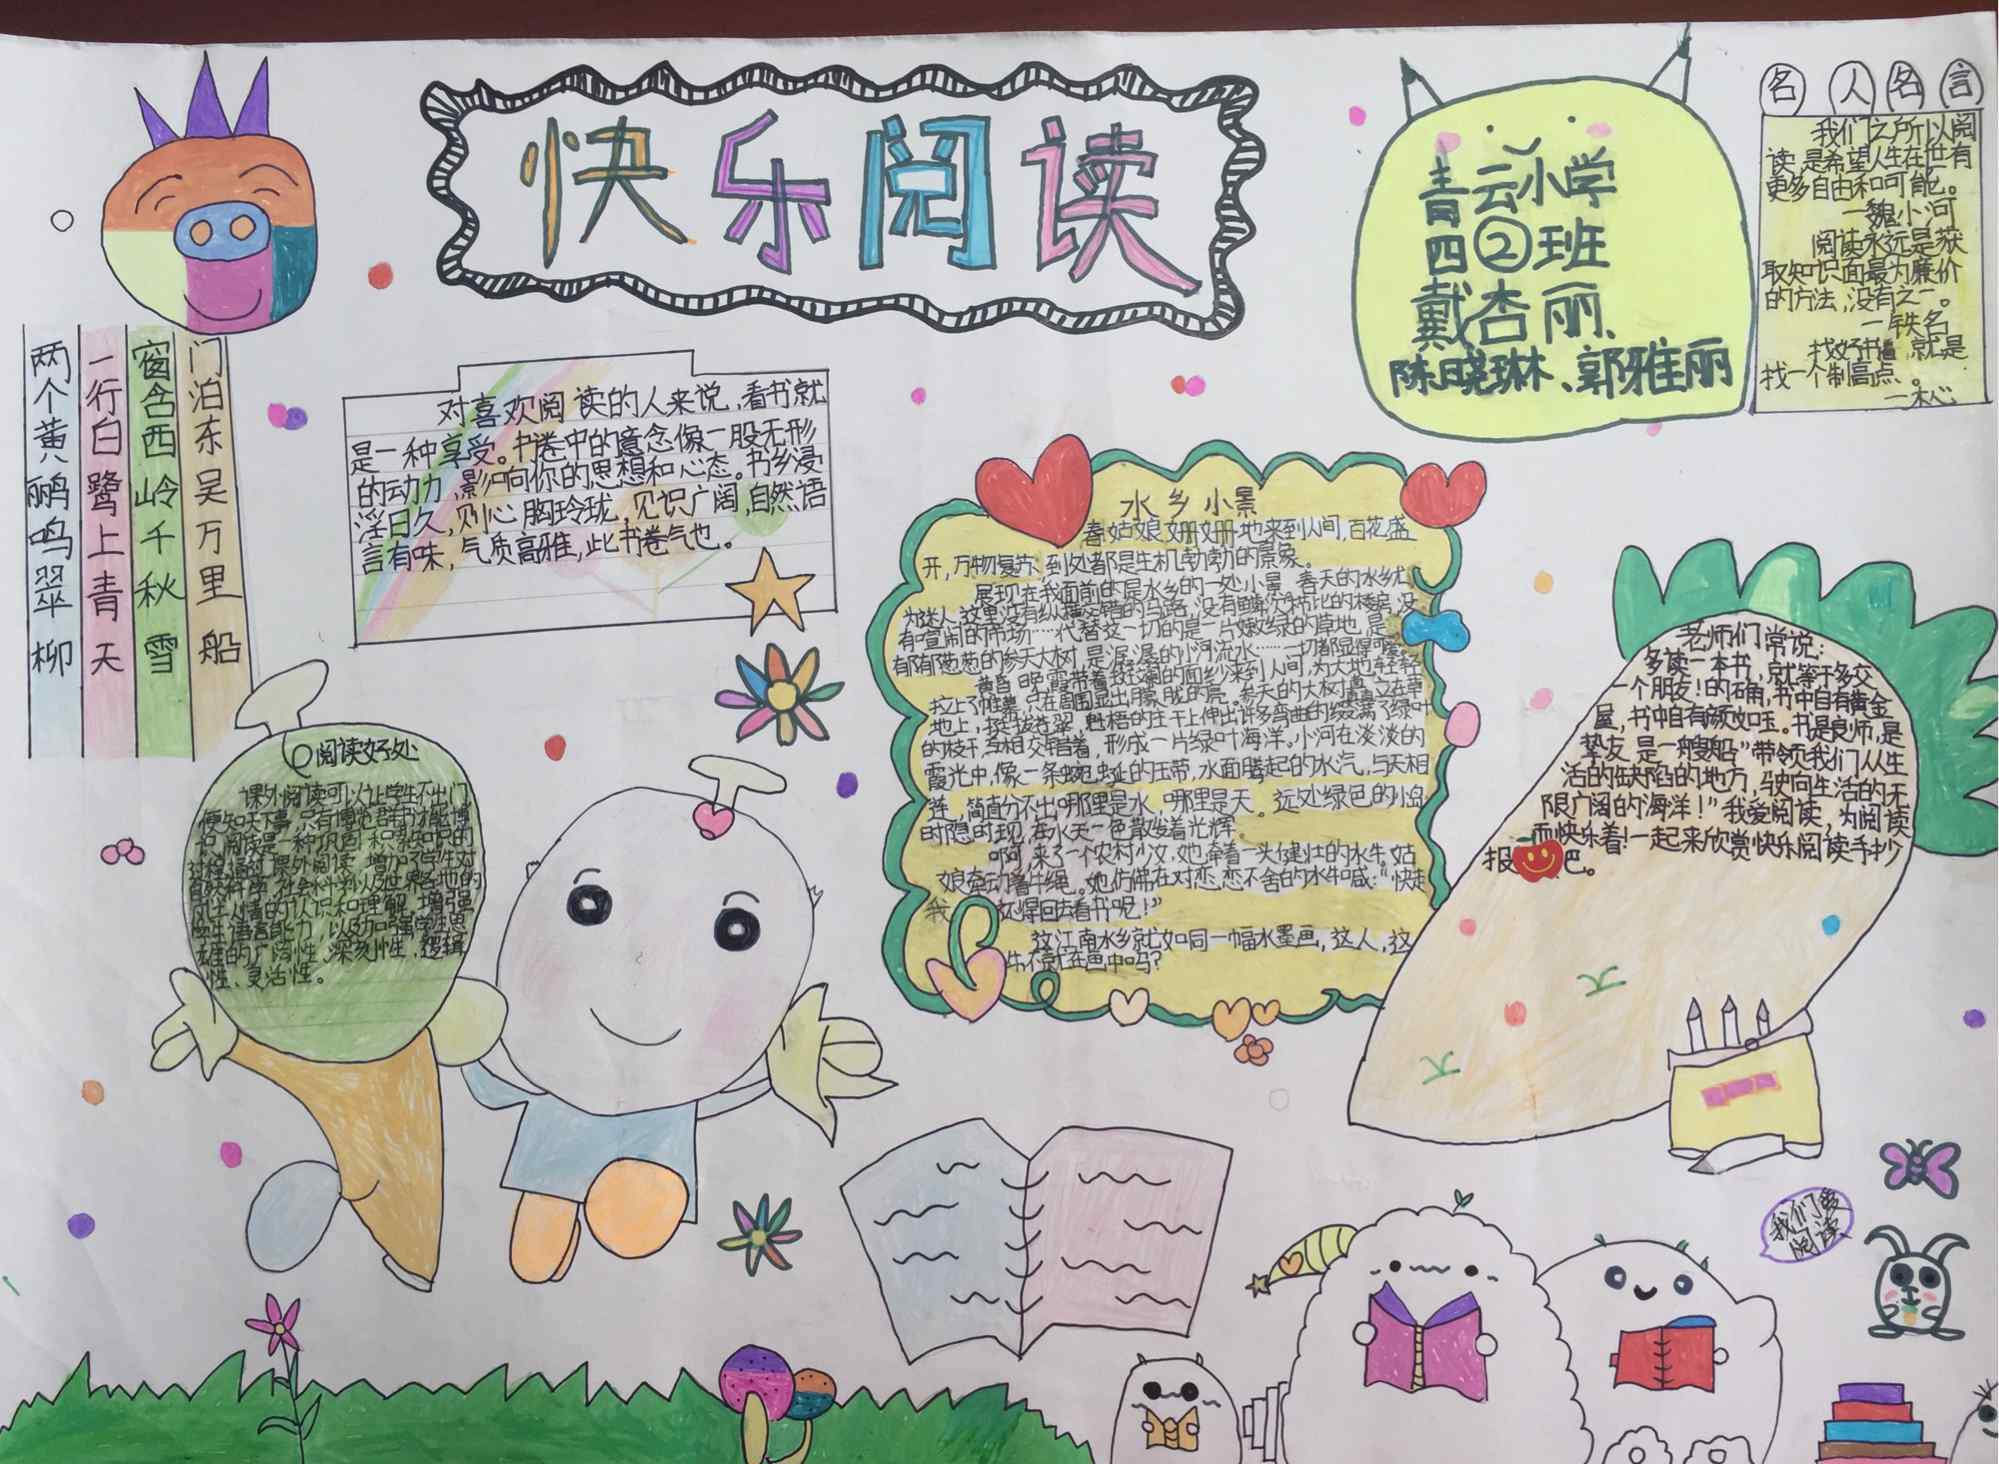 快乐阅读
青云小学
四②班
戴杏丽、
陈晓琳、郭雅丽
名人名言
我们之所以阅
读是希望人生在世有
更多自由和可能。
一魏小河
阅读永远是获
取知识面最为廉价
的方法,没有之一。
一铁名
找好书看,就是
找一个制高点。
一木心
两个黄鹂鸣翠柳
一行白鹭上青天
窗含西岭千秋雪
门泊东吴万里船
对喜欢阅读的人来说,看书就
是一种享受。书卷中的意念像一股无形
的动力,影响向你的思想和心态。书乡浸
淫日久,则心胸玲珑,见识广阔,自然语
言有味,气质高雅,此书卷气也。
水乡小景
春姑娘姗姗地来到人间,百花盛
开,万物复苏,到处都是生机勃勃的景象。
展现在我面前的是水乡的一处小景。春天的水乡尤
为迷人,这里没有纵横交错的马路,没有鳞次栉比的楼房,没
有喧闹的市场……代替这一切的是一片嫩绿的草地,是
有郁郁葱葱的参天大树,是潺潺的小河流水……一切都显得可爱
黄昏,晚霞带着玫斓的面纱来到人间,为大地轻轻
拉上了帷幕,只在周围显出朦胧的亮。参天的大树矗立在草
地上,挺拔苍翠,魁梧的庄干上伸出许多弯曲的缀满了绿叶
的枝干,互相交错着,形成一片绿叶海洋。小河在淡淡的
霞光中,像一条蜿蜒的玉带,水面腾起的水汽,与天相
连,简直分不出哪里是水,哪里是天。远处绿色的小岛
时隐时现,在水天一色散发着光辉。
啊,来了一个农村少女,她牵着一头健壮的水牛。姑
娘牵动着牛绳。她仿佛在对恋恋不舍的水牛喊:“快走
我 还得回去看书呢!”
这江南水乡就如同一幅水墨画,这人,这
牛,不就在画中吗?
老师们常说:
多读一本书,就等于多交
一个朋友!的确,书中自有黄金
屋,书中自有颜如玉。书是良师,是
挚友,是一艘船”带领我们从生
活的缺陷的地方,驶向生活的无
限广阔的海洋!”我爱阅读,为阅读
而快乐着!一起来欣赏快乐阅读手抄
报吧。
阅读好处
课外阅读可以让学生不出门
便知天下事,只有博览群书才能博
阅读是一种巩固和积累知识的
过程,通过课外阅读,增加了学生对
自然科学、社会科学以及世界各地的
风土人情的认识和理解,增强
学生语言能力,以及加强学生思
维的广阔性、深刻性、逻辑
性、灵活性。
我们爱
阅读